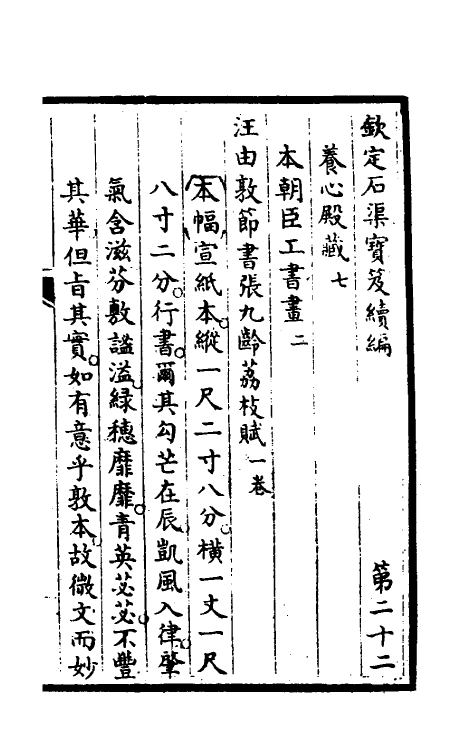 欽定石渠寶笈續編　第二十二
養心殿藏七
本朝臣工書畫二
汪由敦節書張九齡荔枝賦一卷
本幅宣紙本縱一尺二寸八分橫一丈一尺
八寸二分行書爾其勾芒在辰凱風入律肇
氣含滋芬敷謐溢綠穗靡靡青英苾苾不豐
其華但旨其實如有意乎敦本故微文而妙